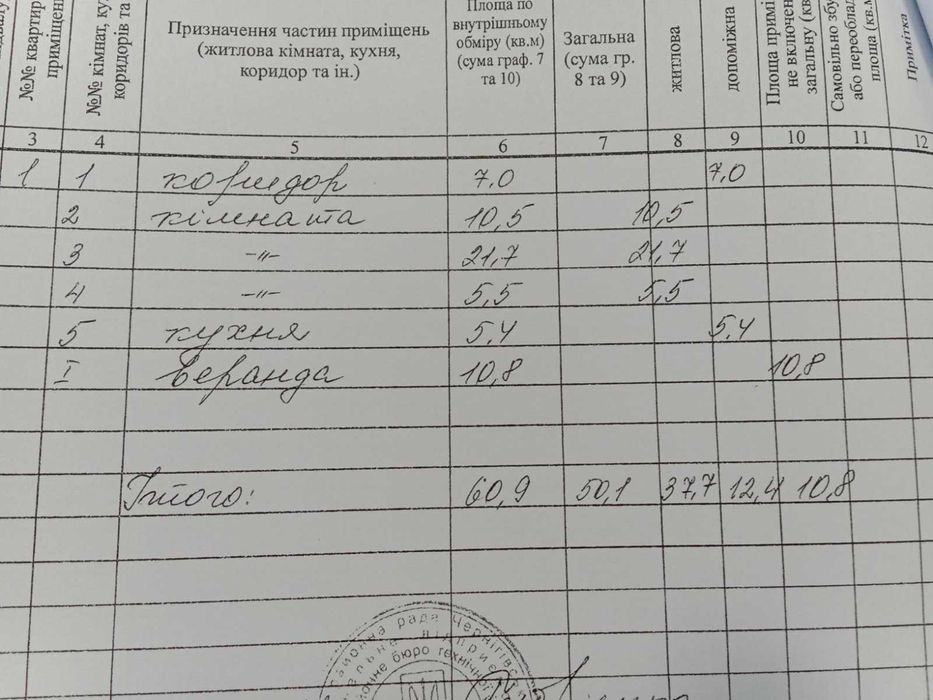 №№ квартир
приміщень
№№ кімнат, ку
коридорів та
Призначення частин приміщень
(житлова кімната, кухня,
коридор та ін.)
Площа по
внутрішньому
обміру (кв.м)
(сума граф. 7
та 10)
Загальна
(сума гр.
8 та 9)
житлова
допоміжна
Площа приміщ
не включен
загальну (кв
Самовільно збу
або переоблад
площа (кв.м
Примітка
3 4 5 6 7 8 9 10 11 12
1 1 коридор 7.0 7,0
2 кімната 10,5 10,5
3 -"- 21,7 21,7
4 -"- 5,5 5,5
5 кухня 5.4 5.4
I веранда 10,8 10,8
Ітого: 60,9 50,1 37,7 12,4 10,8
районна рада Чернігівс
бюро технічно